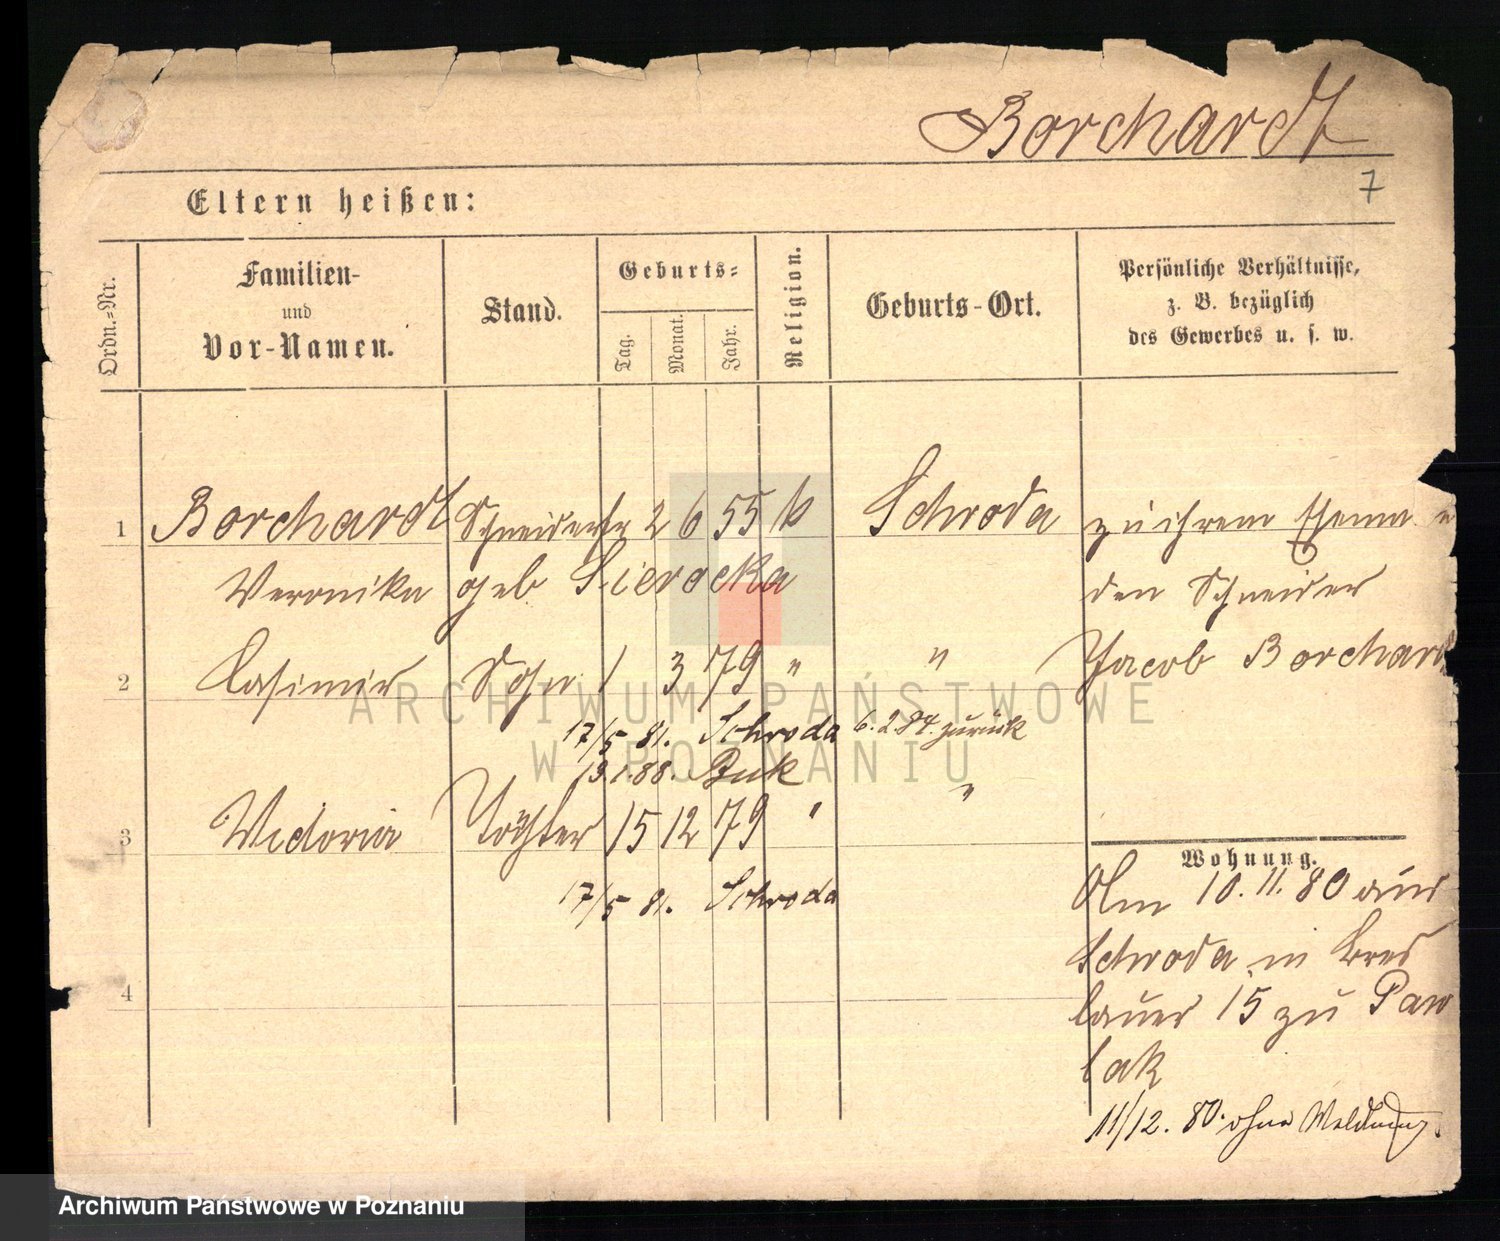 Borchardt
7
Eltern heißen:
Ordn.-Nr.
Familien-
und
Vor-Namen.
Stand.
Geburts-
Tag.
Monat.
Jahr.
Religion.
Geburts-Ort.
Persönliche Verhältnisse,
z. B. bezüglich
des Gewerbes u. s. w.
1 Borchardt Schneiderfr 2 6 55 k Schroda zu ihrem Ehemann
Veronika geb Sierocka den Schneider
2 Casimir Sohn 1 3 79 " " Jacob Borchardt
17/5 81. Schroda 6.2.84. zurück
13.1.88. Buk
3 Victoria Tochter 15 12 79 " "
17/5 81. Schroda
4
Wohnung.
Am 10.11.80 aus
Schroda in Bres
lauer 15 zu Paw
lak
11/12. 80. ohne Meldung.
ARCHIWUM PAŃSTWOWE
W POZNANIU
Archiwum Państwowe w Poznaniu